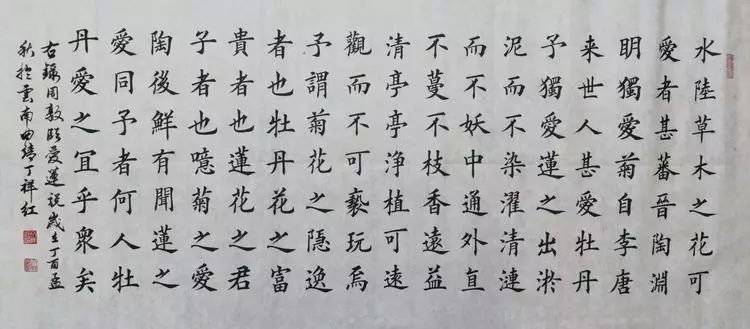 水陸草木之花可
愛者甚蕃晉陶淵
明獨愛菊自李唐
来世人甚愛牡丹
予獨愛蓮之出淤
泥而不染濯清漣
而不妖中通外直
不蔓不枝香遠益
清亭亭浄植可遠
觀而不可褻玩焉
予謂菊花之隱逸
者也牡丹花之富
貴者也蓮花之君
子者也噫菊之愛
陶後鮮有聞蓮之
愛同予者何人牡
丹愛之冝乎衆矣
右錄周敦頤愛蓮説歲在丁酉孟
秋於雲南曲靖丁祥红